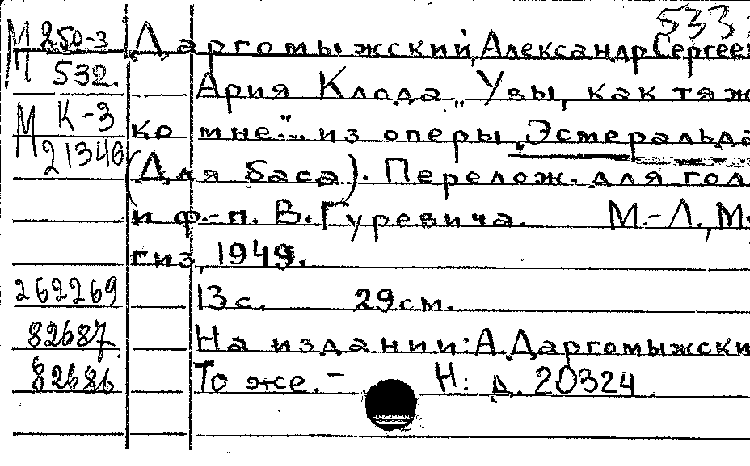 533
М 250-3 Даргомыжский, Александр Сергее
532. Ария Клода „Увы, как тяж
М К-3 ко мне"... из оперы „Эсмеральда
21346 (Для баса). Перелож. для гол
и ф.-п. В. Гуревича. М.-Л., М
гиз, 1949.
262269 13 с. 29 см.
82687 На издании: А. Даргомыжски
82686 То же. – Н: д. 20324